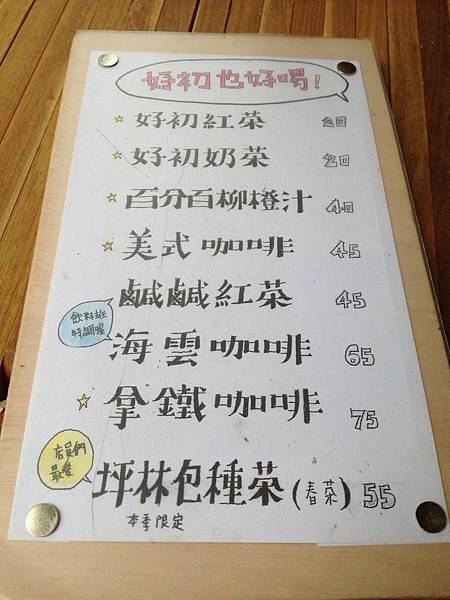 好初也好喝!
☆ 好初紅茶 20
☆ 好初奶茶 20
☆ 百分百柳橙汁 40
☆ 美式咖啡 45
鹹鹹紅茶 45
飲料班
特調喔
海雲咖啡 65
☆ 拿鐵咖啡 75
店員們
最愛
坪林包種茶(春茶) 55
本季限定